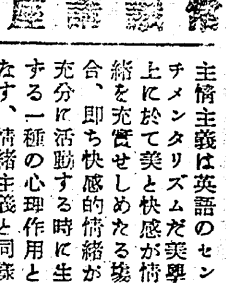 主情主義は英語のセン
チメンタリズムだ美學
上に於て美と快感が情
緒を充實せしめたる塲
合、即ち快感的情緒が
充分に活動する時に生
する一種の心理作用と
なす、情緒主義と同樣